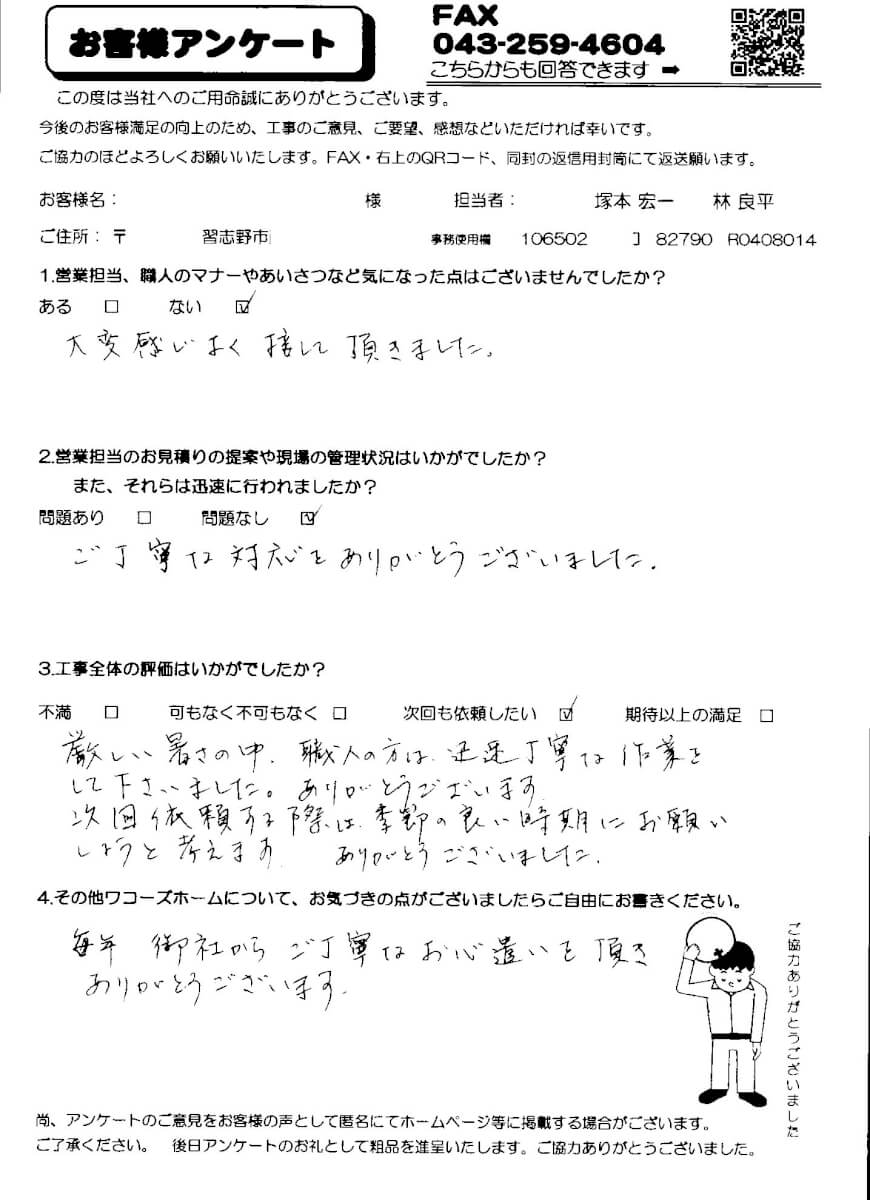 お客様アンケート
FAX
043-259-4604
こちらからも回答できます ➡
この度は当社へのご用命誠にありがとうございます。
今後のお客様満足の向上のため、工事のご意見、ご要望、感想などいただければ幸いです。
ご協力のほどよろしくお願いいたします。FAX・右上のQRコード、同封の返信用封筒にて返送願います。
お客様名： 様 担当者： 塚本 宏一 林 良平
ご住所：〒 習志野市 事務使用欄 106502 ] 82790 R0408014
1.営業担当、職人のマナーやあいさつなど気になった点はございませんでしたか？
ある □ ない ☑
大変感じよく接して頂きました。
2.営業担当のお見積りの提案や現場の管理状況はいかがでしたか？
また、それらは迅速に行われましたか？
問題あり □ 問題なし ☑
ご丁寧な対応をありがとうございました.
3.工事全体の評価はいかがでしたか？
不満 □ 可もなく不可もなく □ 次回も依頼したい ☑ 期待以上の満足 □
厳しい暑さの中、職人の方は、迅速丁寧な作業を
して下さいました。ありがとうございます
次回依頼する際は、季節の良い時期にお願い
しようと考えます ありがとうございました.
4.その他ワコーズホームについて、お気づきの点がございましたらご自由にお書きください。
毎年 御社からご丁寧なお心遣いを頂き
ありがとうございます.
ご協力ありがとうございました
尚、アンケートのご意見をお客様の声として匿名にてホームページ等に掲載する場合がございます。
ご了承ください。 後日アンケートのお礼として粗品を進呈いたします。ご協力ありがとうございました。